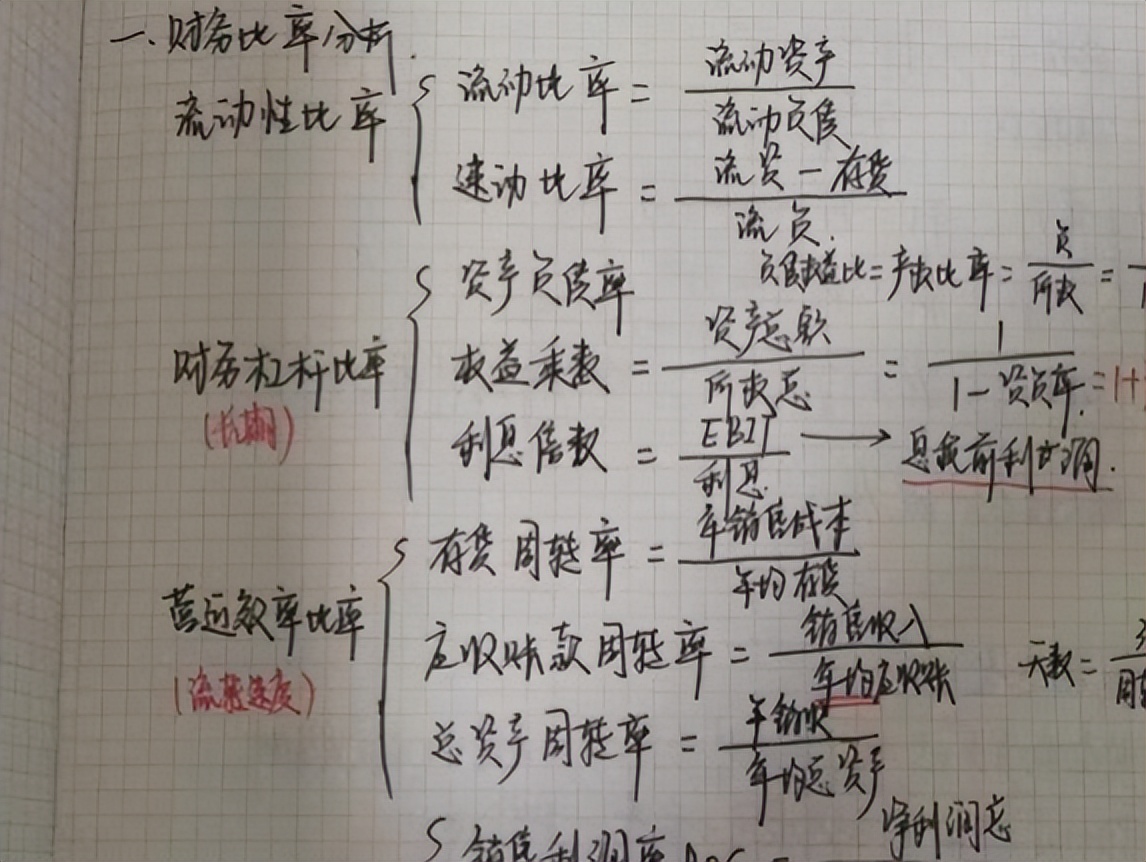 一、财务比率分析
流动性比率
流动比率 = 流动资产 / 流动负债
速动比率 = 流资 - 存货 / 流负.
财务杠杆比率
(长期)
资产负债率
负债权益比 = 产权比率 = 负 / 所权 =
权益乘数 = 资产总额 / 所权总 = 1 / 1 - 资负率. = 1+
利息倍数 = EBIT / 利息. → 息税前利润.
营运效率比率
(流转速度)
存货周转率 = 年销售成本 / 年均存货
应收账款周转率 = 销售收入 / 年均应收账
天数 =
总资产周转率 = 年销收 / 年均总资产
销售利润率 ROS = 净利润总